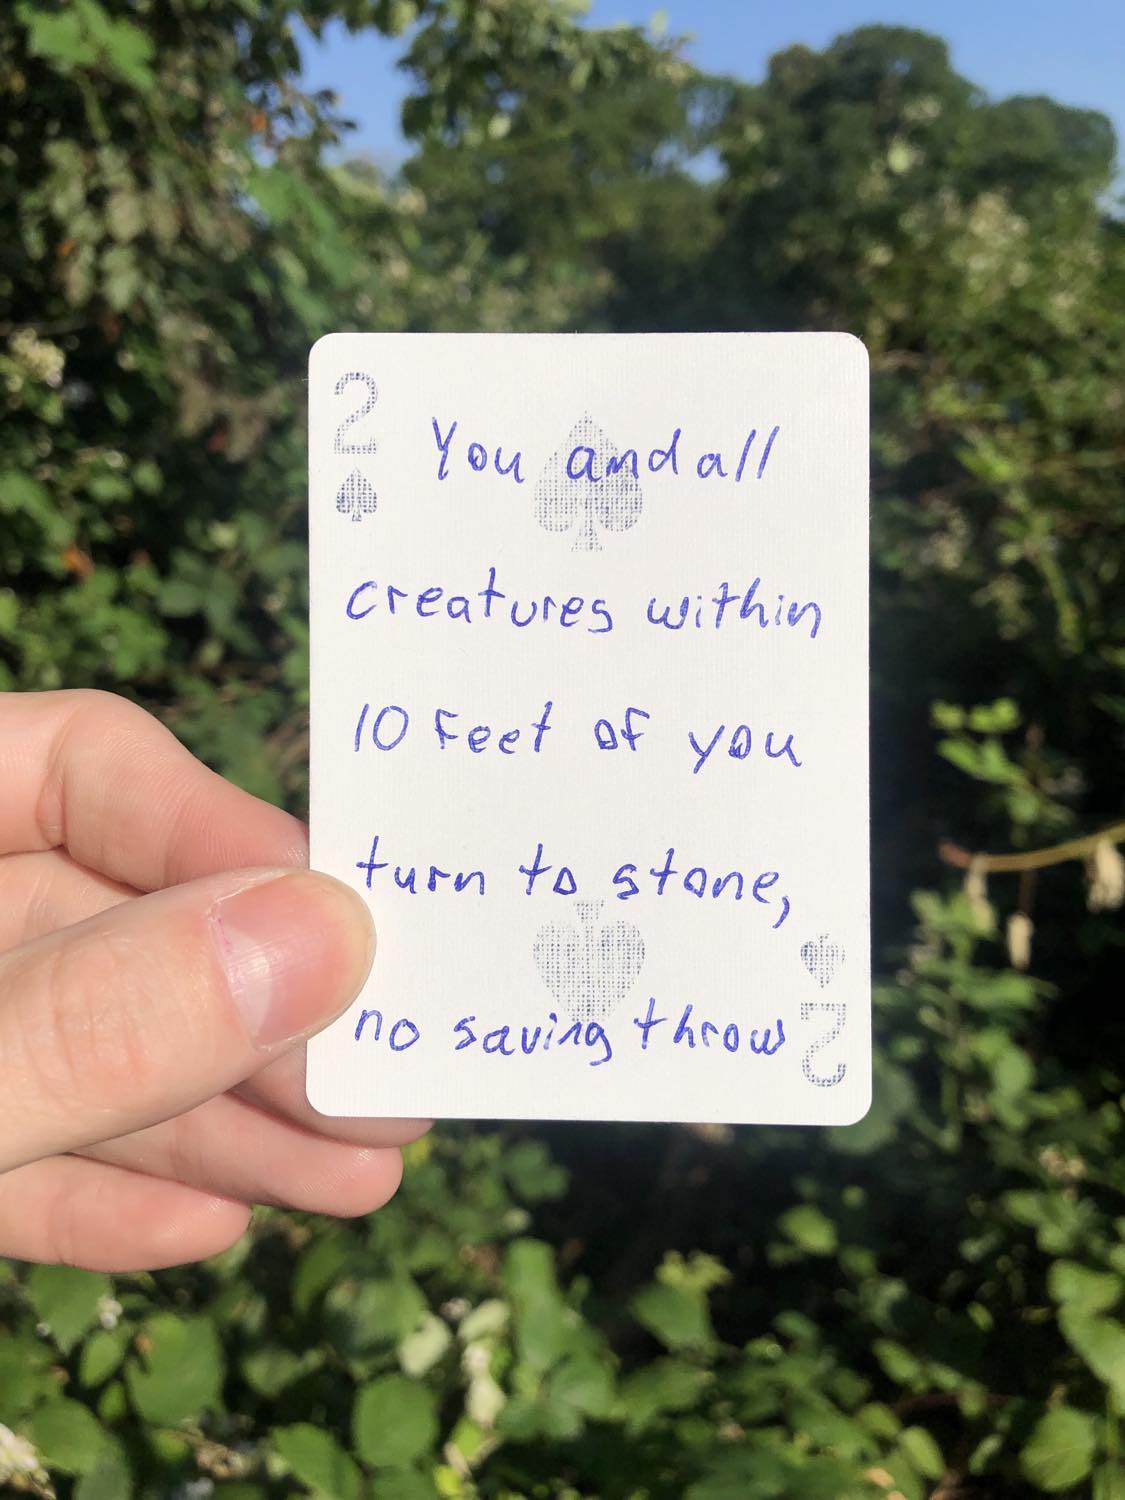 2
You and all
creatures within
10 feet of you
turn to stone,
no saving throw
2